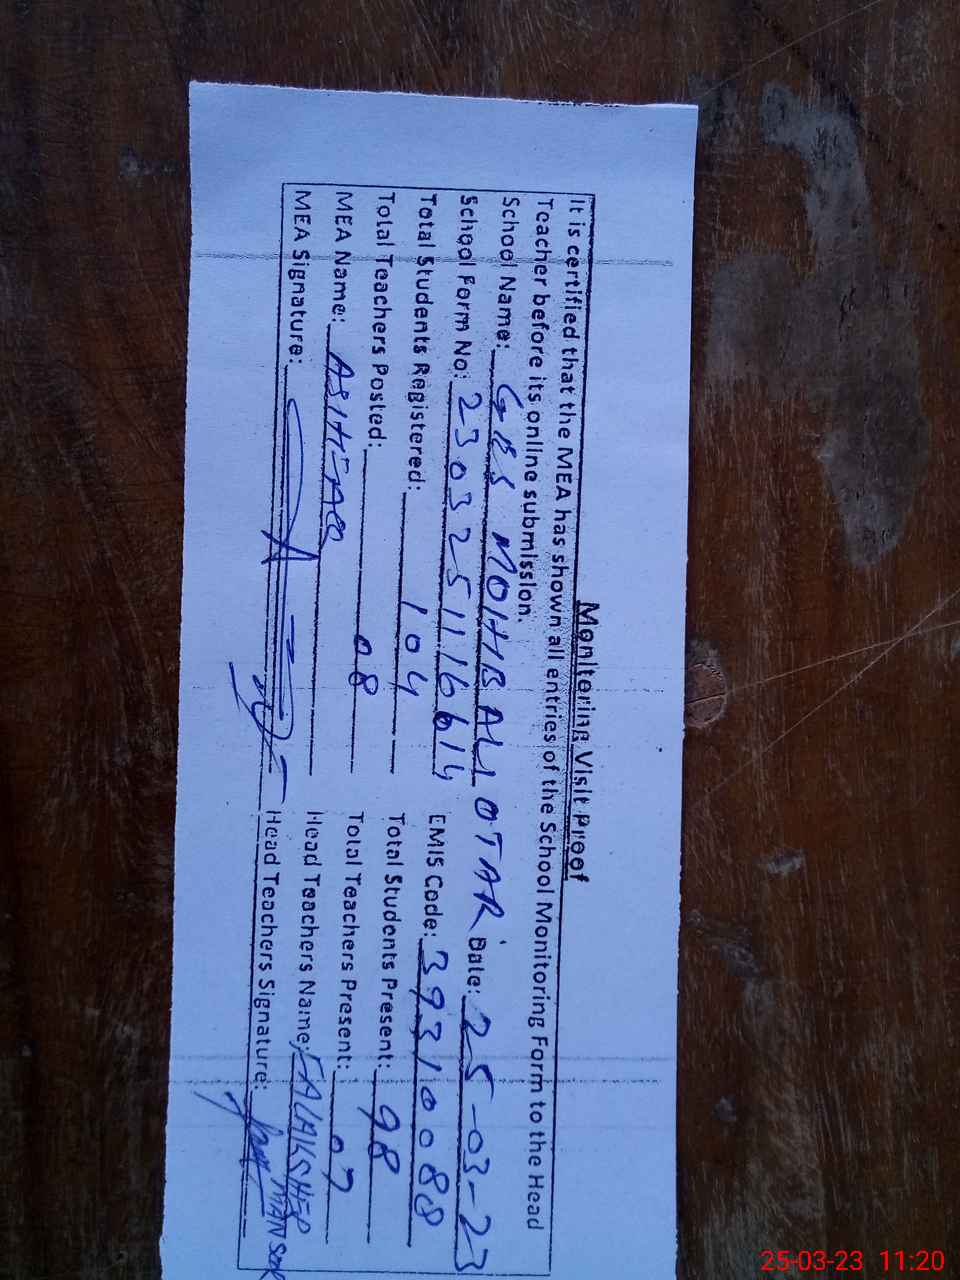 Monitoring Visit Proof
It is certified that the MEA has shown all entries of the School Monitoring Form to the Head
Teacher before its online submission.
School Name: GBS MOHBALI OTAR Date: 25-03-23
School Form No: 230325116614 EMIS Code: 39310088
Total Students Registered: 104 Total Students Present: 98
Total Teachers Posted: 08 Total Teachers Present: 07
MEA Name: ASHFAQ Head Teachers Name: FALAKSHER
MEA Signature: Head Teachers Signature:
25-03-23 11:20